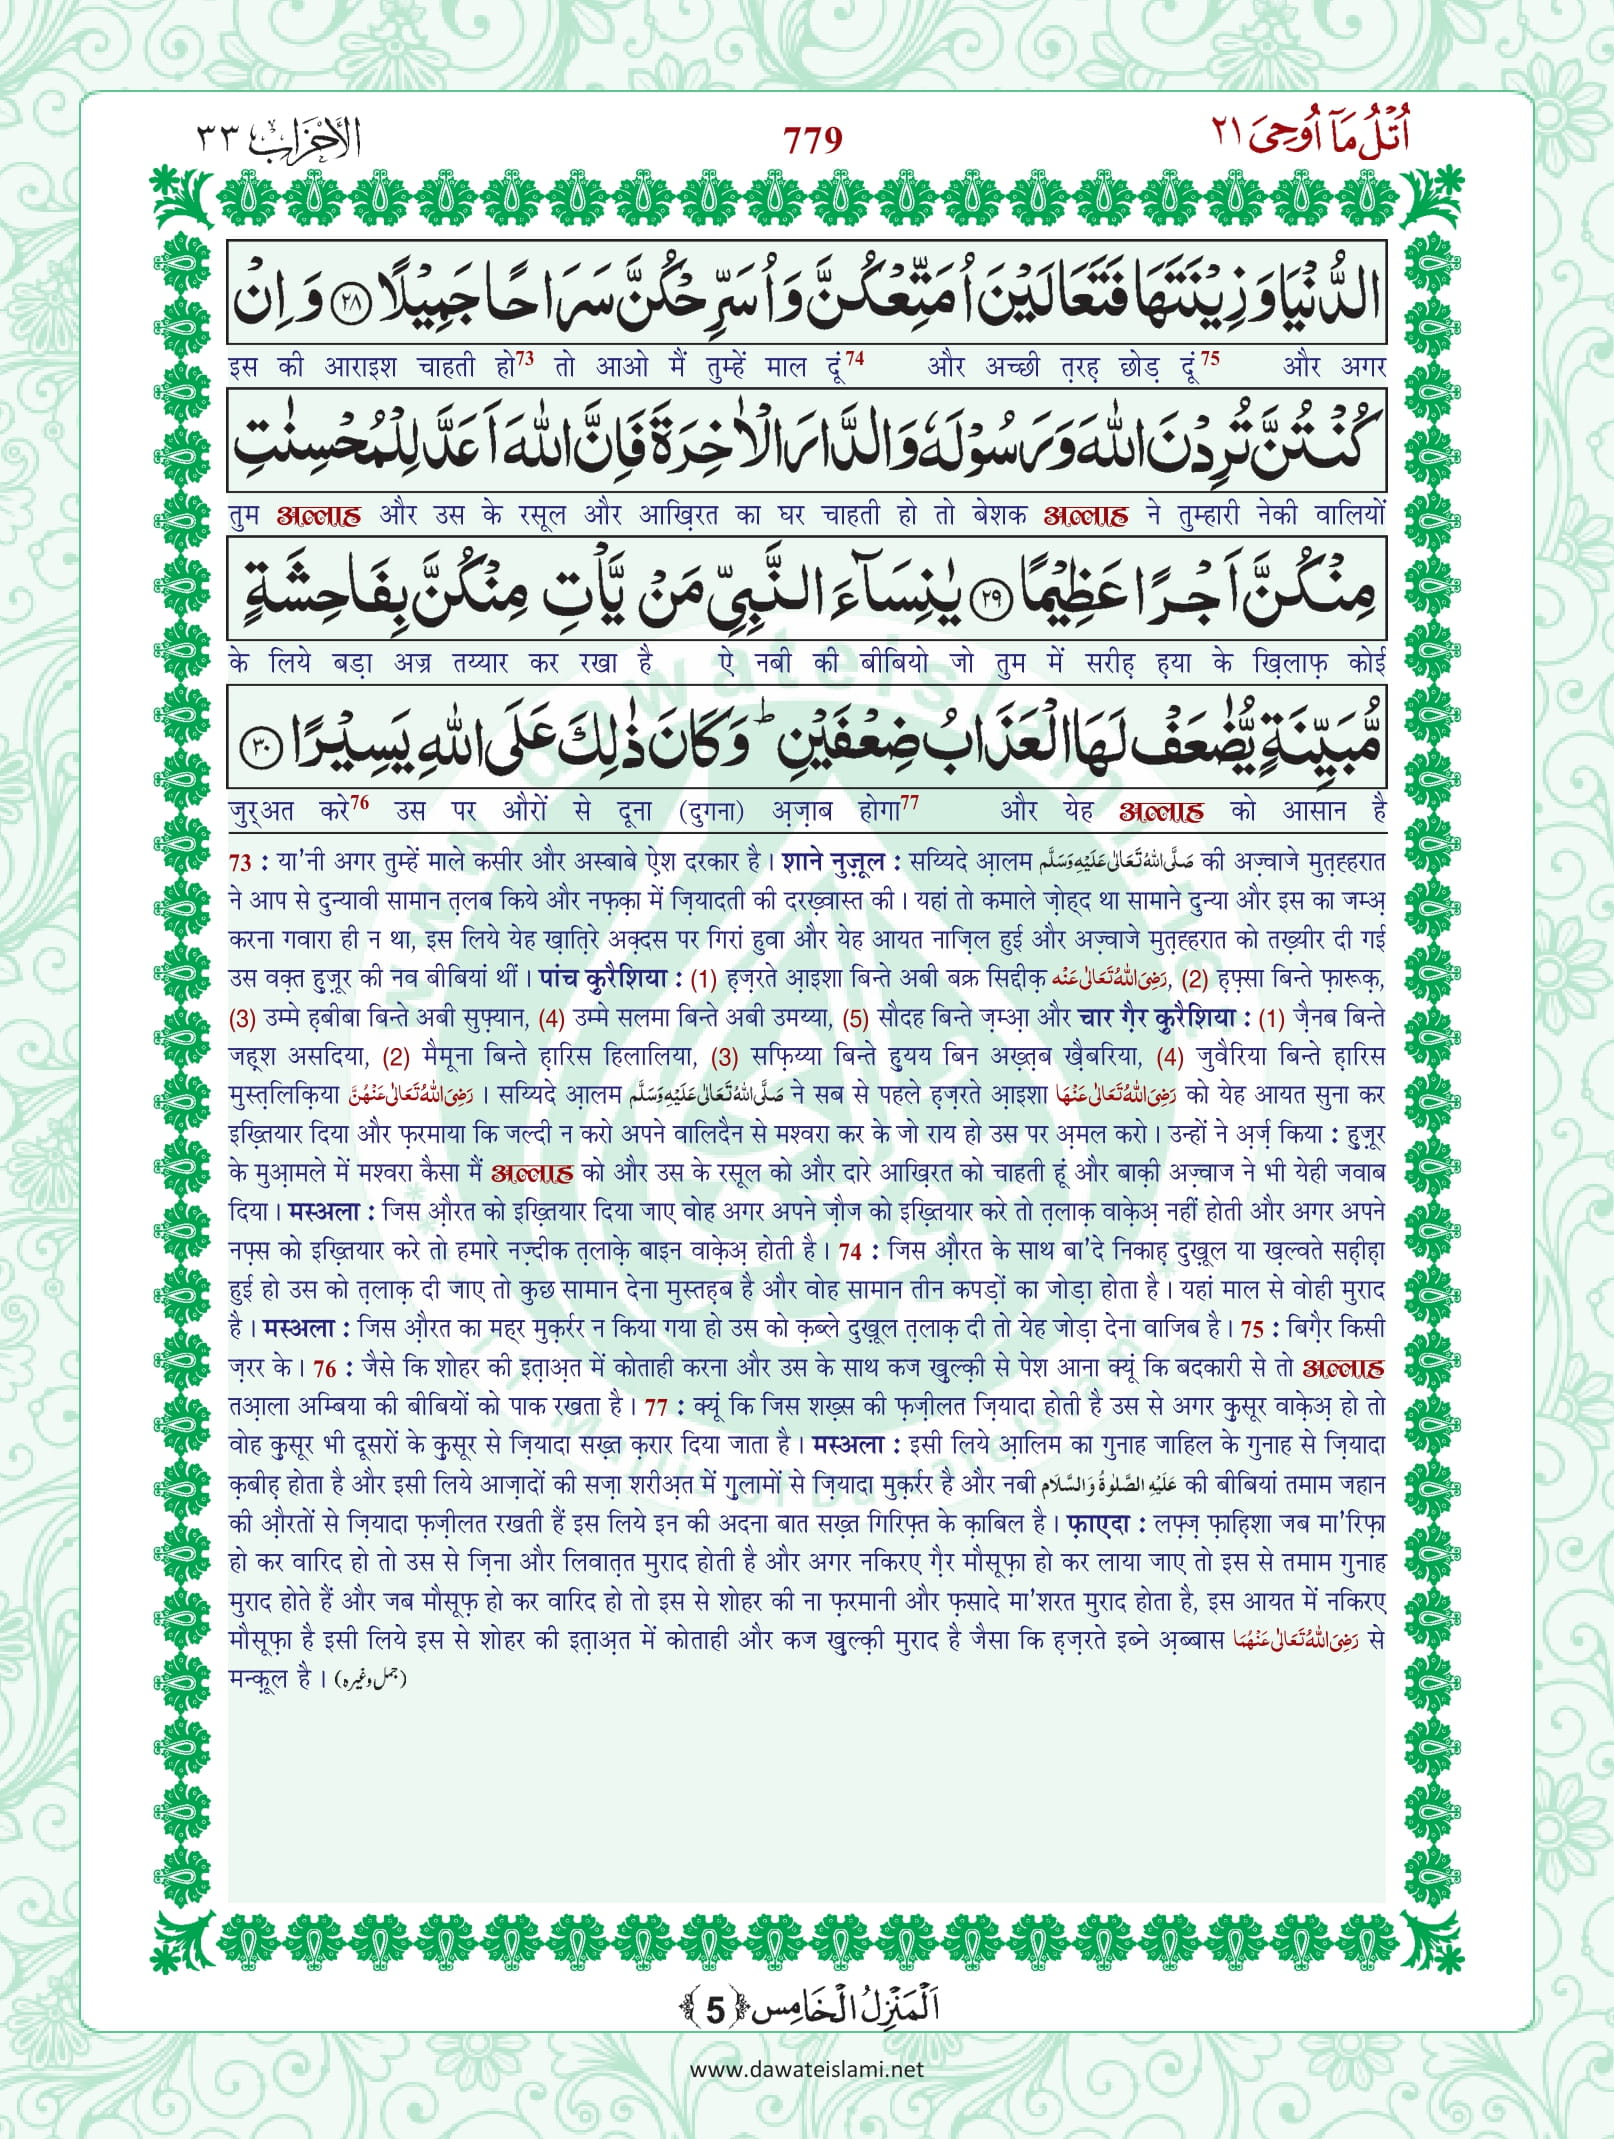 الاحزاب ٣٣
779
اُتْلُ مَاۤ اُوْحِیَ ٢١
الدُّنْیَا وَ زِیْنَتَهَا فَتَعَالَیْنَ اُمَتِّعْكُنَّ وَ اُسَرِّحْكُنَّ سَرَاحًا جَمِیْلًا ﴿۲۸﴾ وَ اِنْ
इस की आराइश चाहती हो73 तो आओ मैं तुम्हें माल दूं74 और अच्छी त़रह़ छोड़ दूं75 और अगर
كُنْتُنَّ تُرِدْنَ اللّٰهَ وَ رَسُوْلَهٗ وَ الدَّارَ الْاٰخِرَةَ فَاِنَّ اللّٰهَ اَعَدَّ لِلْمُحْسِنٰتِ
तुम अल्लाह और उस के रसूल और आख़िरत का घर चाहती हो तो बेशक अल्लाह ने तुम्हारी नेकी वालियों
مِنْكُنَّ اَجْرًا عَظِیْمًا ﴿۲۹﴾ یٰنِسَآءَ النَّبِیِّ مَنْ یَّاْتِ مِنْكُنَّ بِفَاحِشَةٍ
के लिये बड़ा अज्र तय्यार कर रखा है ऐ नबी की बीबियो जो तुम में सरीह़ ह़या के ख़िलाफ़ कोई
مُّبَیِّنَةٍ یُّضٰعَفْ لَهَا الْعَذَابُ ضِعْفَیْنِؕ وَ كَانَ ذٰلِكَ عَلَى اللّٰهِ یَسِیْرًا ﴿۳۰﴾
जुर्अत करे76 उस पर औरों से दूना (दुगना) अ़ज़ाब होगा77 और येह अल्लाह को आसान है
73 : या'नी अगर तुम्हें माले कसीर और अस्बाबे ऐश दरकार है। शाने नुज़ूल : सय्यिदे आ़लम صَلَّى اللّٰهُ تَعَالٰى عَلَيْهِ وَسَلَّم की अज़्वाजे मुत़ह्हरात
ने आप से दुन्यावी सामान त़लब किये और नफ़क़ा में ज़ियादती की दरख़्वास्त की। यहां तो कमाले ज़ोह्द था सामाने दुन्या और इस का जम्अ़
करना गवारा ही न था, इस लिये येह ख़ात़िरे अक़्दस पर गिरां हुवा और येह आयत नाज़िल हुई और अज़्वाजे मुत़ह्हरात को तख़्यीर दी गई
उस वक़्त हुज़ूर की नव बीबियां थीं। पांच कुरैशिया : (1) ह़ज़रते आ़इशा बिन्ते अबी बक्र सिद्दीक़ رَضِىَ اللّٰهُ تَعَالٰى عَنْه, (2) ह़फ़्सा बिन्ते फ़ारूक़,
(3) उम्मे ह़बीबा बिन्ते अबी सुफ़्यान, (4) उम्मे सलमा बिन्ते अबी उमय्या, (5) सौदह बिन्ते ज़म्आ़ और चार ग़ैर कुरैशिया : (1) ज़ैनब बिन्ते
जह़्श असदिया, (2) मैमूना बिन्ते ह़ारिस हिलालिया, (3) सफ़िय्या बिन्ते हुयय बिन अख़्त़ब ख़ैबरिया, (4) जुवैरिया बिन्ते ह़ारिस
मुस्त़लिक़िया رَضِىَ اللّٰهُ تَعَالٰى عَنْهُنَّ। सय्यिदे आ़लम صَلَّى اللّٰهُ تَعَالٰى عَلَيْهِ وَسَلَّم ने सब से पहले ह़ज़रते आ़इशा رَضِىَ اللّٰهُ تَعَالٰى عَنْهَا को येह आयत सुना कर
इख़्तियार दिया और फ़रमाया कि जल्दी न करो अपने वालिदैन से मश्वरा कर के जो राय हो उस पर अ़मल करो। उन्हों ने अ़र्ज़ किया : हुज़ूर
के मुआ़मले में मश्वरा कैसा मैं अल्लाह को और उस के रसूल को और दारे आख़िरत को चाहती हूं और बाक़ी अज़्वाज ने भी येही जवाब
दिया। मस्अला : जिस औ़रत को इख़्तियार दिया जाए वोह अगर अपने ज़ौज को इख़्तियार करे तो त़लाक़ वाक़ेअ़ नहीं होती और अगर अपने
नफ़्स को इख़्तियार करे तो हमारे नज़्दीक त़लाक़े बाइन वाक़ेअ़ होती है। 74 : जिस औ़रत के साथ बा'दे निकाह़ दुख़ूल या ख़ल्वते सह़ीह़ा
हुई हो उस को त़लाक़ दी जाए तो कुछ सामान देना मुस्तह़ब है और वोह सामान तीन कपड़ों का जोड़ा होता है। यहां माल से वोही मुराद
है। मस्अला : जिस औ़रत का महर मुक़र्रर न किया गया हो उस को क़ब्ले दुख़ूल त़लाक़ दी तो येह जोड़ा देना वाजिब है। 75 : बिग़ैर किसी
ज़रर के। 76 : जैसे कि शोहर की इत़ाअ़त में कोताही करना और उस के साथ कज खुल्क़ी से पेश आना क्यूं कि बदकारी से तो अल्लाह
तआ़ला अम्बिया की बीबियों को पाक रखता है। 77 : क्यूं कि जिस शख़्स की फ़ज़ीलत ज़ियादा होती है उस से अगर कुसूर वाक़ेअ़ हो तो
वोह कुसूर भी दूसरों के कुसूर से ज़ियादा सख़्त क़रार दिया जाता है। मस्अला : इसी लिये आ़लिम का गुनाह जाहिल के गुनाह से ज़ियादा
क़बीह़ होता है और इसी लिये आज़ादों की सज़ा शरीअ़त में गुलामों से ज़ियादा मुक़र्रर है और नबी عَلَيْهِ الصَّلٰوةُ وَالسَّلَام की बीबियां तमाम जहान
की औ़रतों से ज़ियादा फ़ज़ीलत रखती हैं इस लिये इन की अदना बात सख़्त गिरिफ़्त के क़ाबिल है। फ़ाएदा : लफ़्ज़ फ़ाह़िशा जब मा'रिफ़ा
हो कर वारिद हो तो उस से ज़िना और लिवात़त मुराद होती है और अगर नकिरए ग़ैर मौसूफ़ा हो कर लाया जाए तो इस से तमाम गुनाह
मुराद होते हैं और जब मौसूफ़ हो कर वारिद हो तो इस से शोहर की ना फ़रमानी और फ़सादे मा'शरत मुराद होता है, इस आयत में नकिरए
मौसूफ़ा है इसी लिये इस से शोहर की इत़ाअ़त में कोताही और कज खुल्क़ी मुराद है जैसा कि ह़ज़रते इब्ने अ़ब्बास رَضِىَ اللّٰهُ تَعَالٰى عَنْهُمَا से
मन्क़ूल है। (جمل وغیرہ)
اَلْمَنْزِلُ الْخَامِس ﴿5﴾
www.dawateislami.net